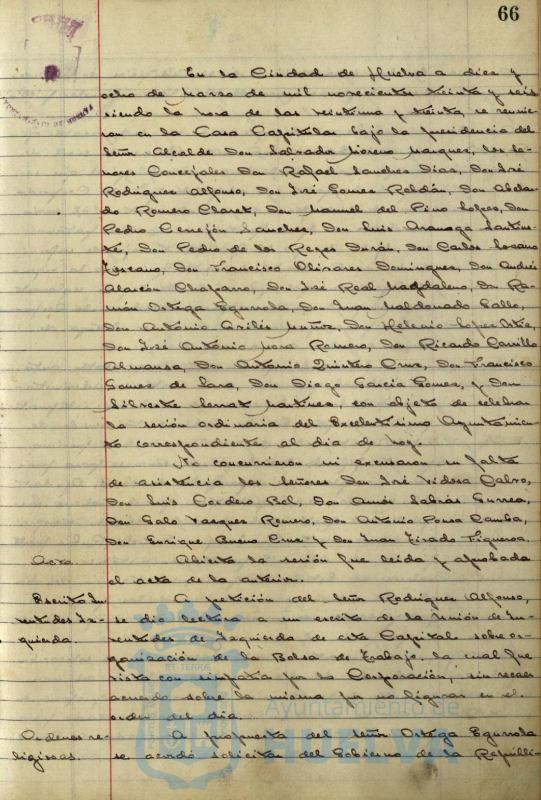 66
En la Ciudad de Huelva a diez y
ocho de Marzo de mil novecientos treinta y seis
siendo la hora de las veintiuna y treinta, se reunie-
ron en la Casa Capitular bajo la presidencia del
Señor Alcalde Don Salvador Moreno Marquez, los Se-
ñores Concejales Don Rafael Sanchez Diaz, Don José
Rodriguez Alfonso, Don José Gomez Roldán, Don Abelar-
do Romero Claret, Don Manuel del Pino Lopez, Don
Pedro Cerrejón Sanchez, Don Luis Aranaga
Don Pedro de los Reyes Durán, Don Carlos Lozano
Toscano, Don Francisco Olivares Dominguez, Don Andrés
Alarcón Chaparro, Don José Real Magdaleno, Don Ra-
món Ortega Egurrola, Don Juan Maldonado Gallo,
Don Antonio Avilés Muñoz, Don Helenio Lopez
Don José Antonio Mora Romero, Don Ricardo Carrillo
Almansa, Don Antonio Quintero Cruz, Don Francisco
Gomez de Lara, Don Diego Garcia Gomez, y Don
Silvestre Serrat Martinez, con objeto de celebrar
la sesión ordinaria del Excelentisimo Ayuntamien-
to correspondiente al dia de hoy.
No concurrieron ni excusaron su falta
de asistencia los Señores Don José Vidosa Calvo,
Don Luis Cordero Bel, Don Amós Sabrás Gurrea,
Don Galo Vazquez Romero, Don Antonio Pousa Camba,
Don Enrique Bueno Cruz y Don Juan Tirado Figueroa.
Acta. Abierta la sesión fue leida y aprobada
el acta de la anterior.
Escrito Ju- A petición del Señor Rodriguez Alfonso,
ventudes Iz- se dio lectura a un escrito de la Unión de Ju-
quierda. ventudes de Izquierda de esta Capital sobre or-
ganización de la Bolsa de Trabajo, la cual fue
vista con simpatia por la Corporación, sin recaer
acuerdo sobre la misma por no figurar en el
orden del dia.
Ordenes re- A propuesta del Señor Ortega Egurrola
ligiosas. se acordó solicitar del Gobierno de la Repúbli-
Ayuntamiento de
HUELVA